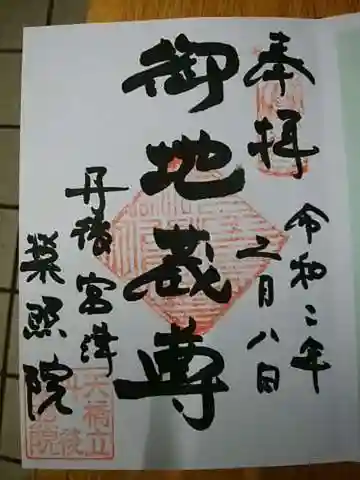 奉拝
令和二年
二月八日
御地蔵尊
丹後宮津
栄照院
天橋立